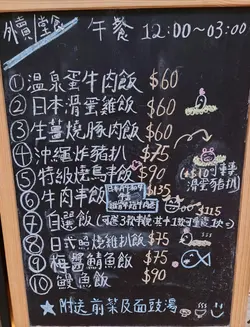 外賣 堂食 午餐 12:00~03:00
① 温泉蛋牛肉飯 $60
② 日本滑蛋雞飯 $60
③ 生薑燒豚肉飯 $60
④ 沖繩炸豬扒 $75
(+$10可轉
滑蛋豬扒)
⑤ 特級燒鳥串飯 $90
⑥ 牛肉串飯 $135
⑦ 自選飯 $115
⑧ 日式照燒雞扒飯 $75
⑨ 梅醬鯖魚飯 $75
⑩ 鰻魚飯 $90
★ 附送前菜及面豉湯